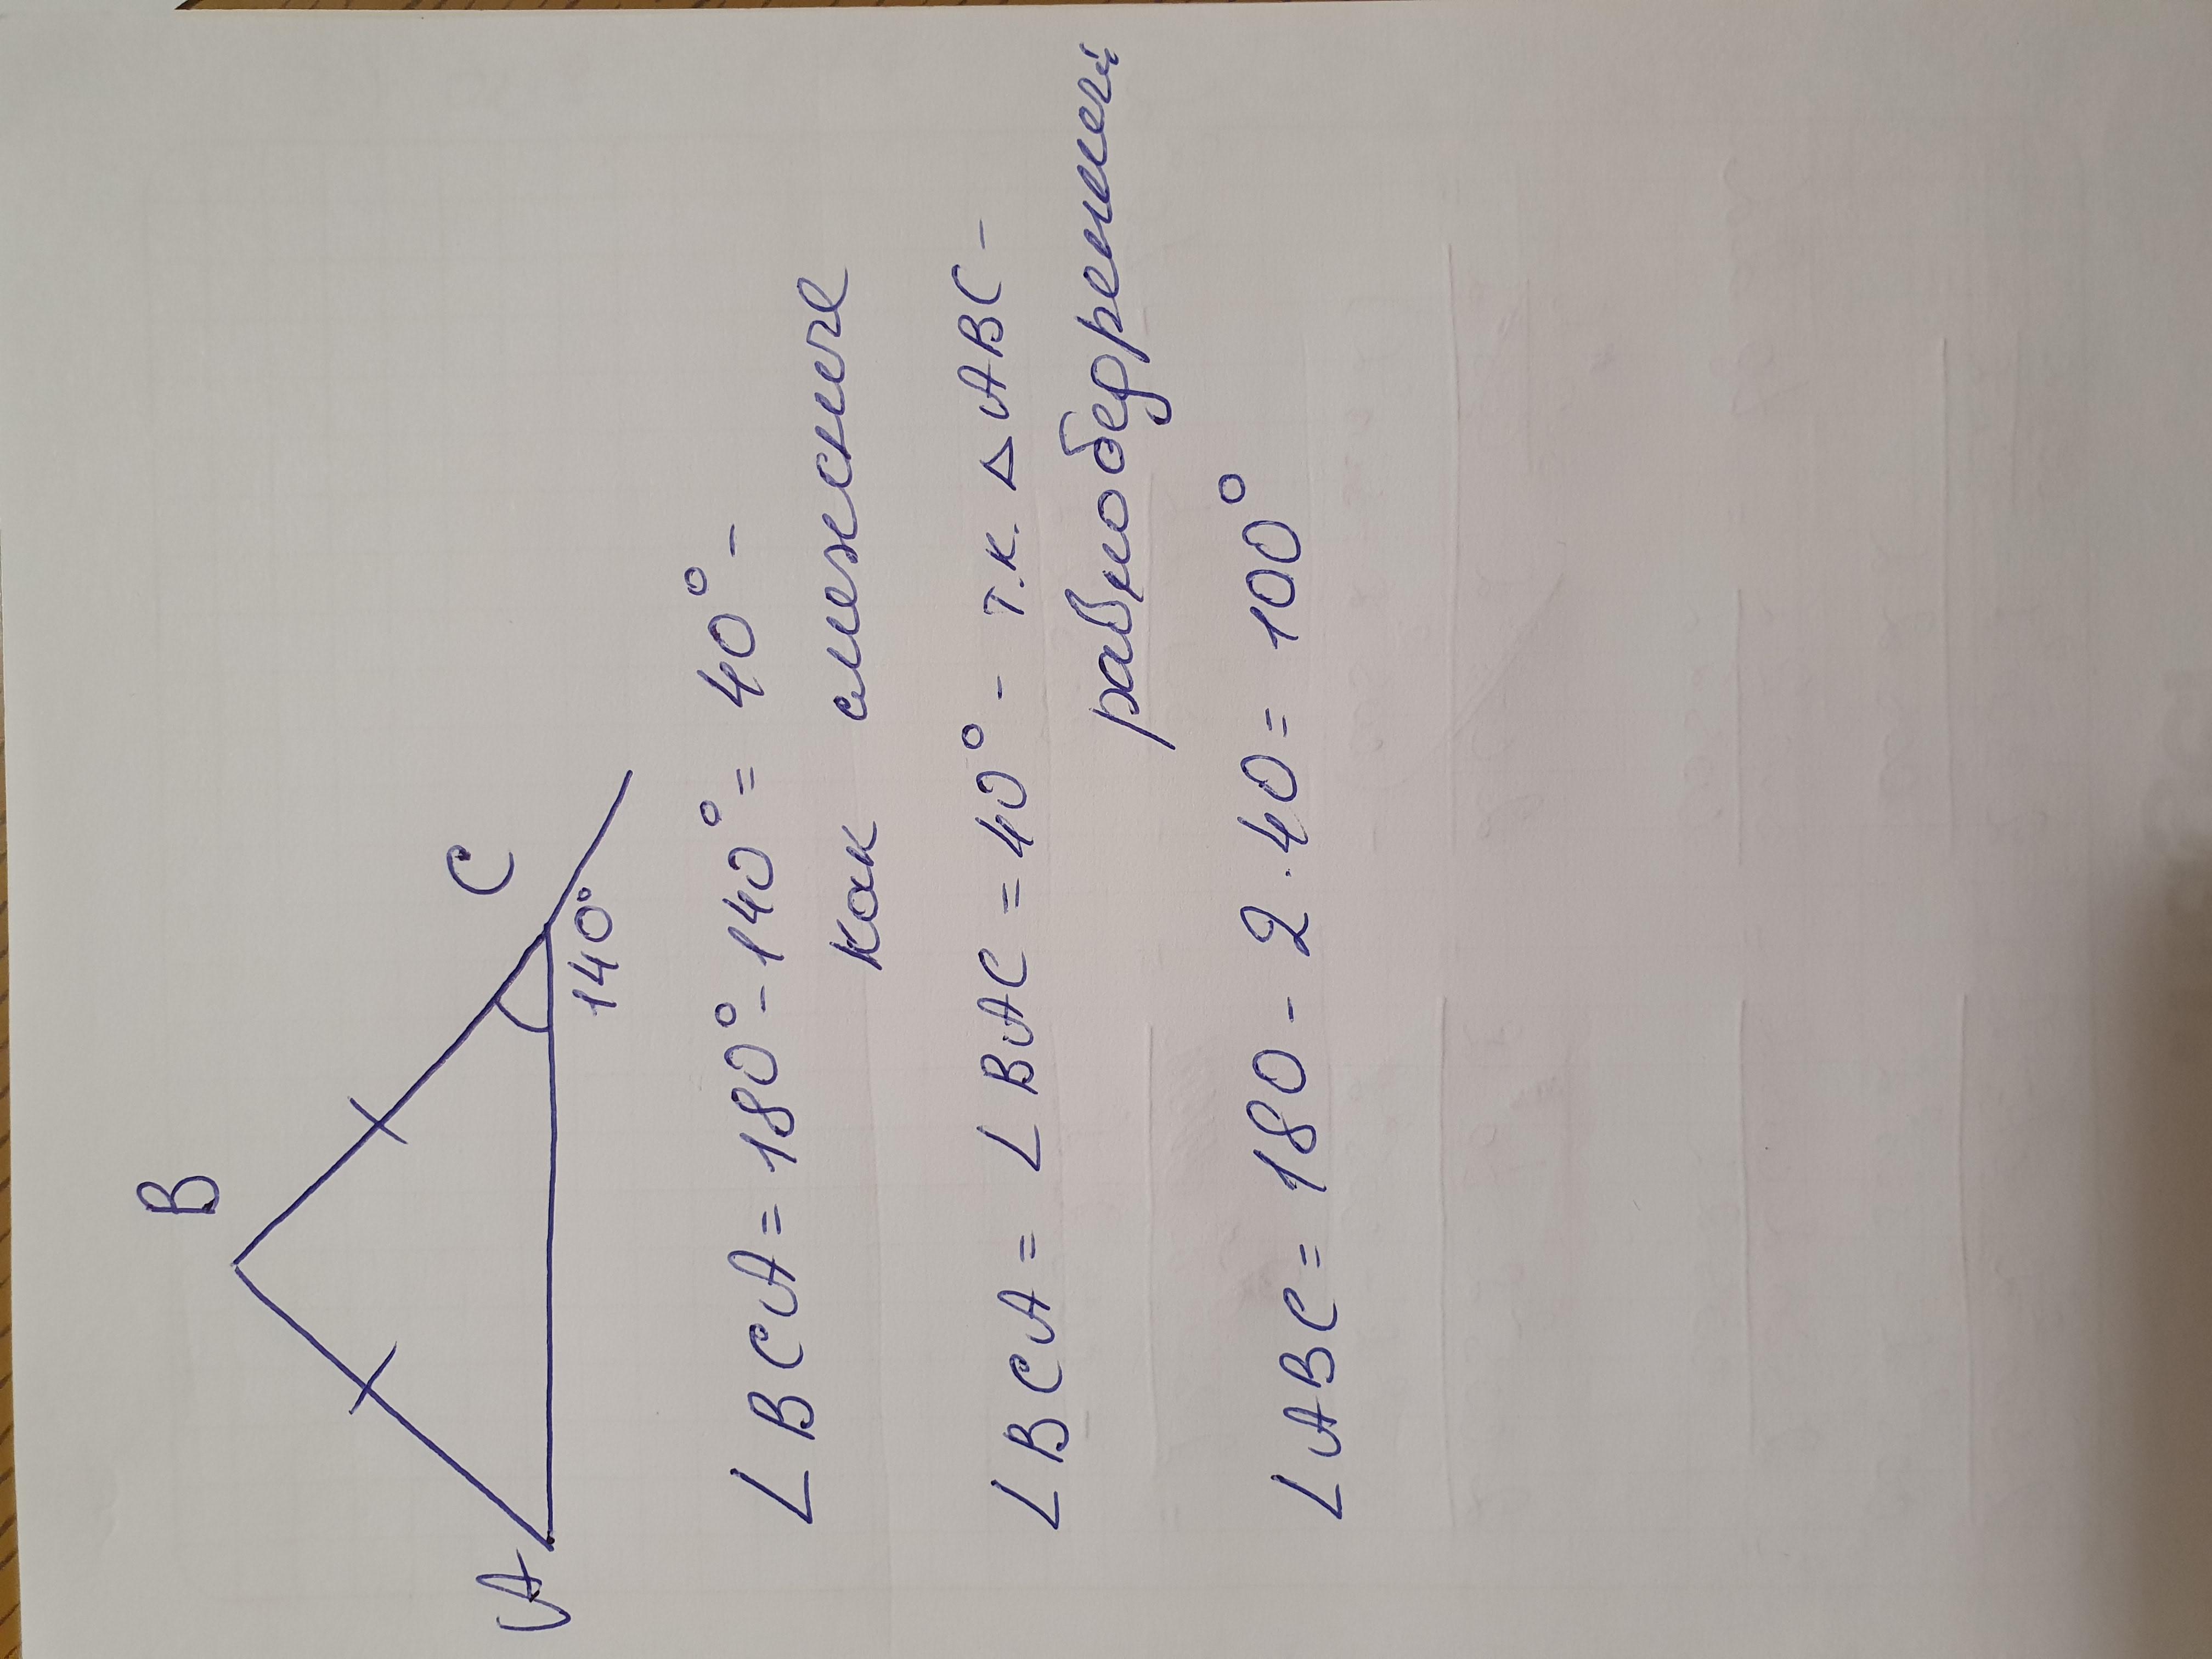 B
C
A
140°
∠BCA = 180° - 140° = 40° -
как смежные
∠BCA = ∠BAC = 40° - т.к. △ABC -
равнобедренный
∠ABC = 180 - 2·40 = 100°